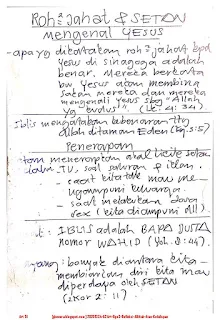 Roh² Jahat & SETAN
mengenal YESUS
- apa yg dikatakan roh² jahat kpd
Yesus di sinagoga adalah
benar. Mereka berkata
bw Yesus akan membina
sakan mereka dan mereka
mengenali Yesus sbg "Allah
yg kudus". (Lk. 4: 34)
Iblis mengatakan kebenaran ttg
Allah ditaman Eden (Kej 3:5)
Penerapan
tdk menerapkan
TV, saat saturan & iklan.
- saat kita tdk mau me-
ngampuni keluarga.
- saat melakukan dosa
sex (kita diampuni dll)
t: IBLIS adalah BAPA DUSTA
nomor WAHID (Yoh. 8: 44).
yang: banyak diantara kita
membiarkan diri kita mau
diperdaya oleh SETAN
(2kor 2: 11)